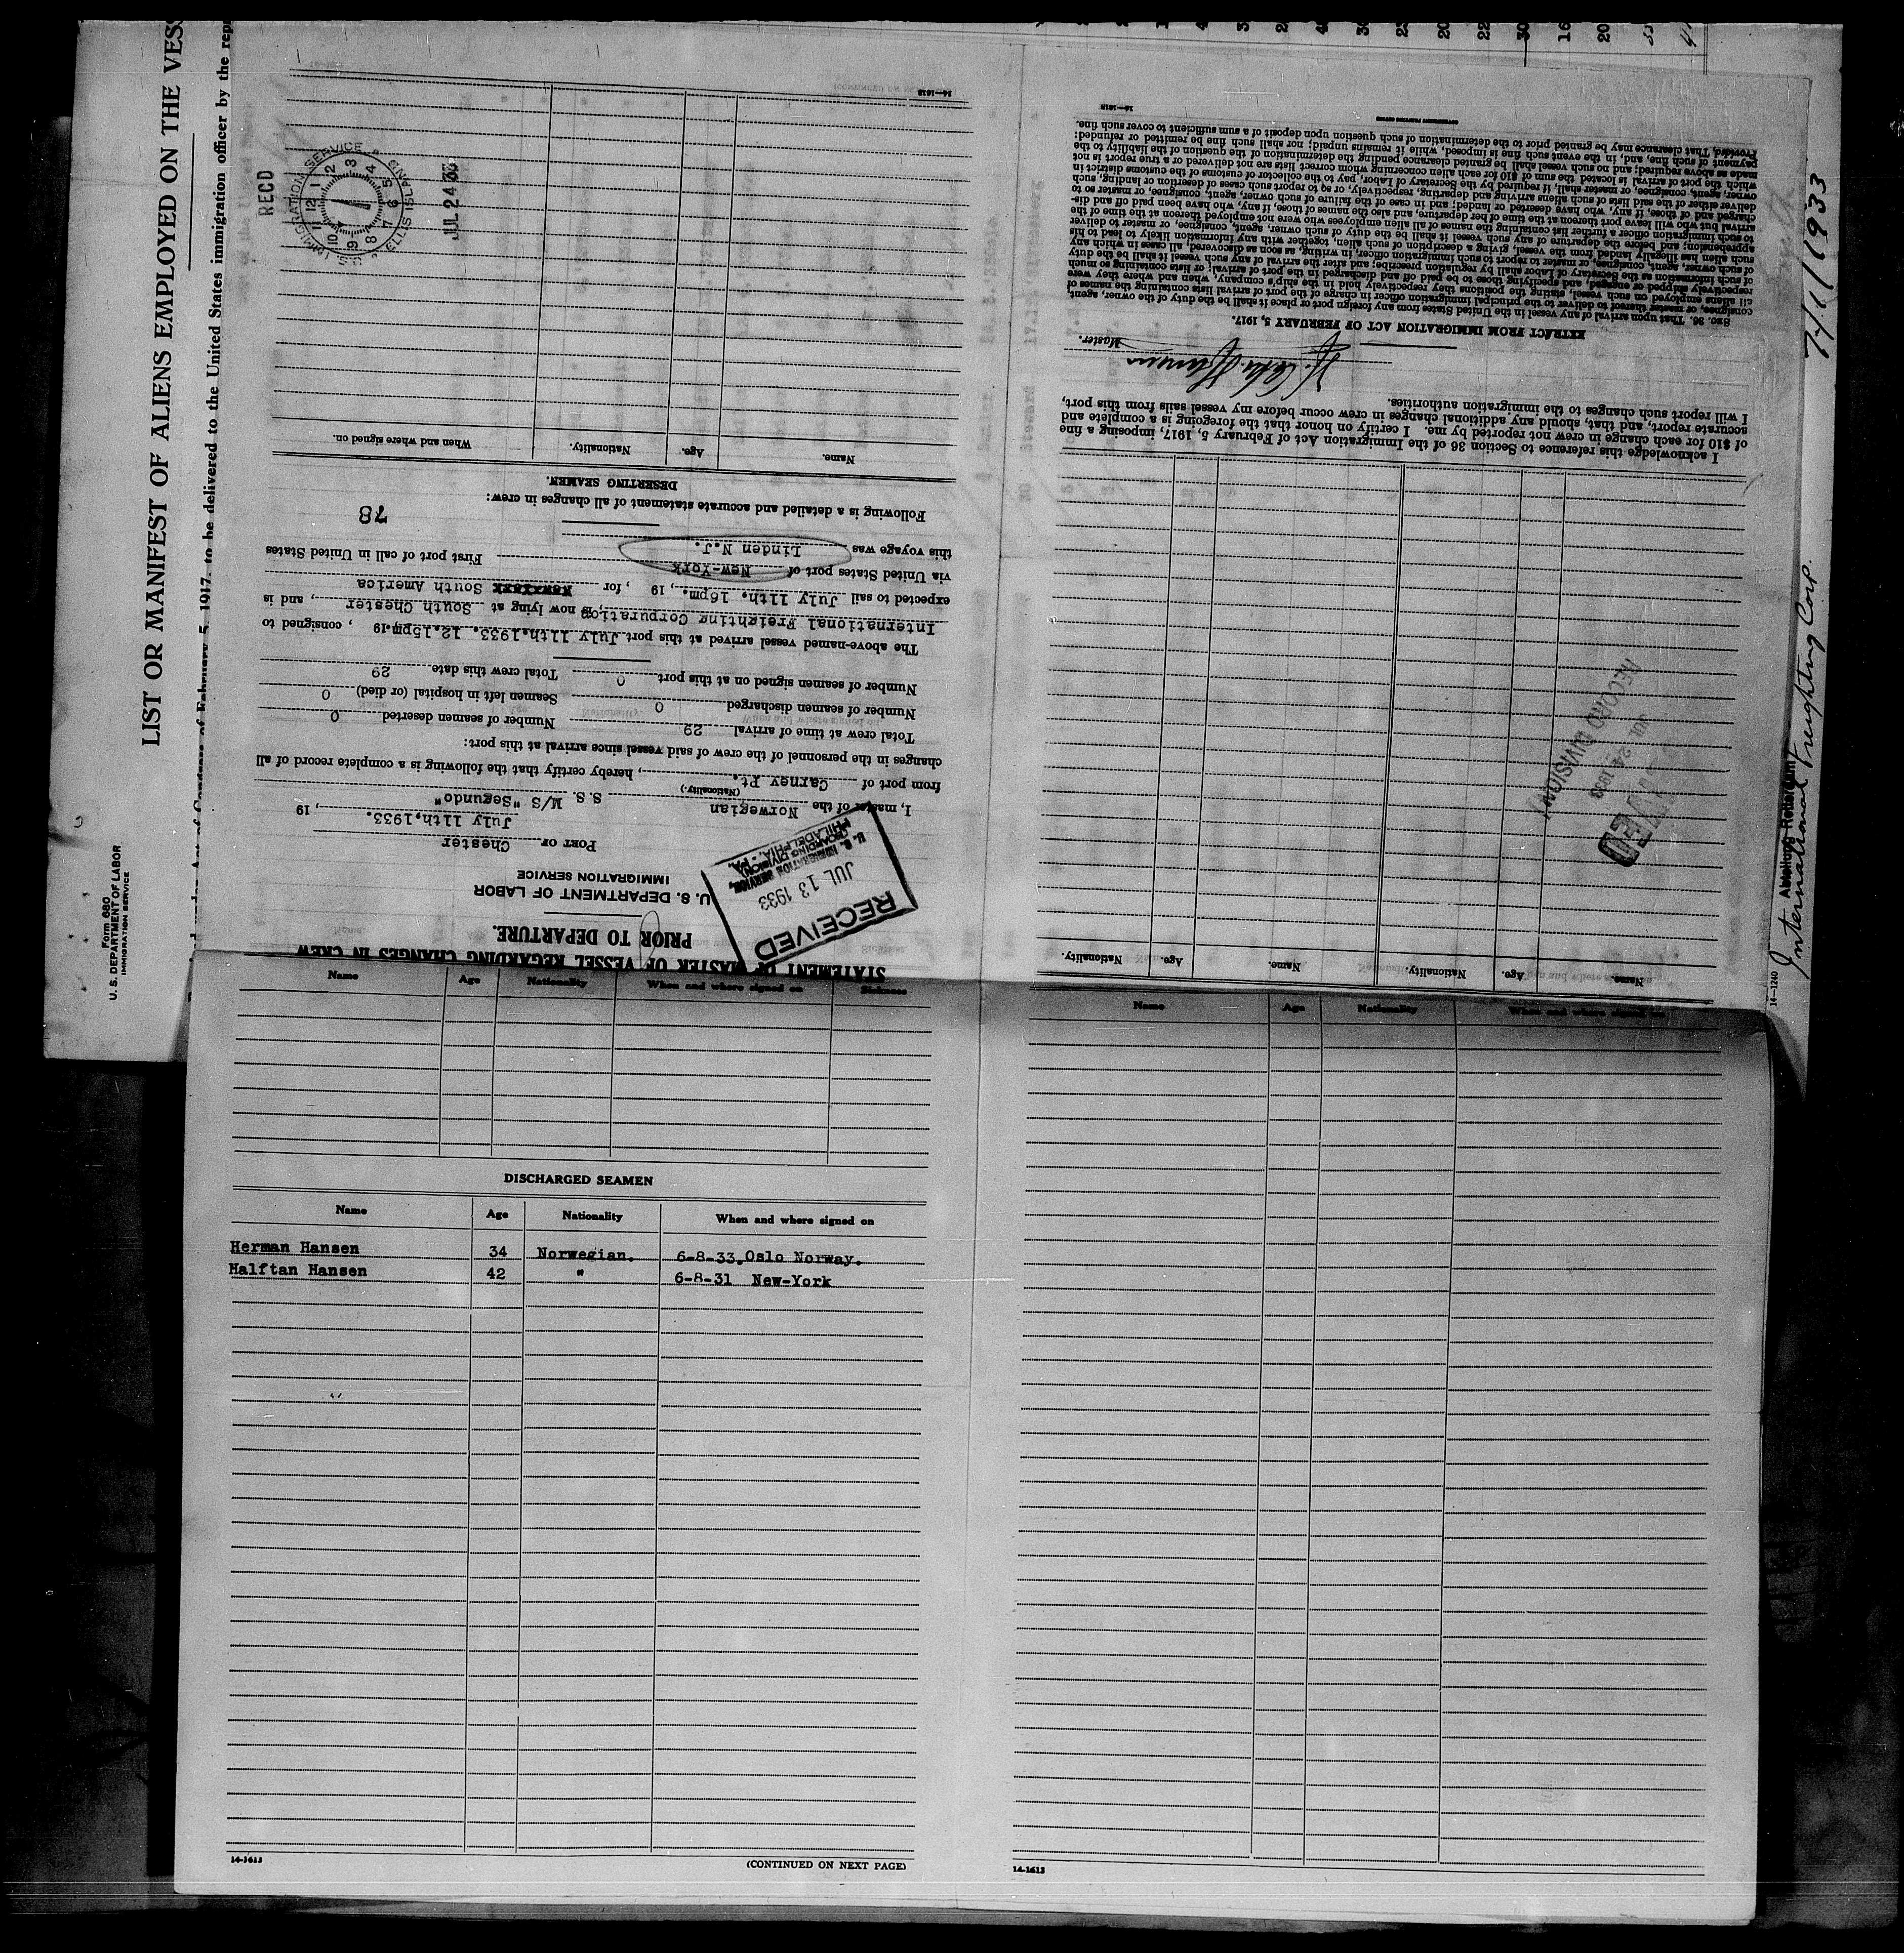 LIST OR MANIFEST OF ALIENS EMPLOYED ON THE VES
1917, to be delivered to the United States immigration officer by the rep
Form 680
U. S. DEPARTMENT OF LABOR
IMMIGRATION SERVICE
STATEMENT OF MASTER OF VESSEL REGARDING CHANGES IN CREW
PRIOR TO DEPARTURE.
U. S. DEPARTMENT OF LABOR
IMMIGRATION SERVICE
RECEIVED
JUL 13 1933
U. S. IMMIGRATION SERVICE,
BOARDING DIVISION,
PHILADELPHIA, PA.
PORT OF Chester
July 11th, 1933. , 19
I, master of the Norwegian S.S. M/S "Segundo"
(Nationality.)
from port of Carney Pt. , hereby certify that the following is a complete record of all
changes in the personnel of the crew of said vessel since arrival at this port:
Total crew at time of arrival 29 Number of seamen deserted 0
Number of seamen discharged 0 Seamen left in hospital (or died) 0
Number of seamen signed on at this port 0 Total crew this date 29
The above-named vessel arrived at this port July 11th.1933. 12.15pm. 19 , consigned to
International Freighting Corporation, now lying at South Chester , and is
expected to sail July 11th. 16pm. , 19 , for South America
via United States port of New-York First port of call in United States
this voyage was Linden N.J.
78
Following is a detailed and accurate statement of all changes in crew:
DESERTING SEAMEN.
Name. Age. Nationality. When and where signed on.
14—1613
RECD
U.S. IMMIGRATION SERVICE
ELLIS ISLAND
1 2 3 4 5 6 7 8 9 10 11 12
JUL 24 33
Name. Age. Nationality. Name. Age. Nationality.
RECORD DIVISION
JUL 24 1933
I acknowledge this reference to Section 36 of the Immigration Act of February 5, 1917, imposing a fine
of $10 for each change in crew not reported by me. I certify on honor that the foregoing is a complete and
accurate report, and that, should any additional changes in crew occur before my vessel sails from this port,
I will report such changes to the immigration authorities.
Master.
EXTRACT FROM IMMIGRATION ACT OF FEBRUARY 5, 1917.
SEC. 36. That upon arrival of any vessel in the United States from any foreign port or place it shall be the duty of the owner, agent,
consignee, or master thereof to deliver to the principal immigration officer in charge of the port of arrival lists containing the names of
all aliens employed on such vessel, stating the positions they respectively hold in the ship's company, when and where they were
respectively shipped or engaged, and specifying those to be paid off and discharged in the port of arrival; or lists containing so much
of such information as the Secretary of Labor shall by regulation prescribe; and after the arrival of any such vessel it shall be the duty
of such owner, agent, consignee, or master to report to such immigration officer, in writing, as soon as discovered, all cases in which any
such alien has illegally landed from the vessel, giving a description of such alien, together with any information likely to lead to his
apprehension; and before the departure of any such vessel it shall be the duty of such owner, agent, consignee, or master to deliver
to such immigration officer a further list containing the names of all alien employees who were not employed thereon at the time of the
arrival but who will leave port thereon at the time of her departure, and also the names of those, if any, who have been paid off and dis-
charged and of those, if any, who have deserted or landed; and in case of the failure of such owner, agent, consignee, or master so to
deliver either of the said lists of such aliens arriving and departing, respectively, or so to report such cases of desertion or landing, such
owner, agent, consignee, or master shall, if required by the Secretary of Labor, pay to the collector of customs of the customs district in
which the port of arrival is located the sum of $10 for each alien concerning whom correct lists are not delivered or a true report is not
made as above required; and no such vessel shall be granted clearance pending the determination of the question of the liability to the
payment of such fine, and, in the event such fine is imposed, while it remains unpaid; nor shall such fine be remitted or refunded:
Provided, That clearance may be granted prior to the determination of such question upon deposit of a sum sufficient to cover such fine.
GOVERNMENT PRINTING OFFICE
14—1613
7/11/1933
International Freighting Corp.
14—1240
Name Age Nationality When and where signed on Sickness
DISCHARGED SEAMEN
Name Age Nationality When and where signed on
Herman Hansen 34 Norwegian. 6-8-33.Oslo Norway.
Halftan Hansen 42 " 6-8-31 New-York
14-1613 (CONTINUED ON NEXT PAGE)
Name Age Nationality When and where signed on
14-1613